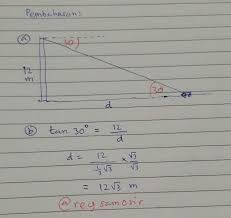 Pembahasan:
(a)
30°
12
m
30°
d
(b) tan 30° = 12/d
d = 12/(1/3 √3) × √3/√3
= 12√3 m
@reysamosir